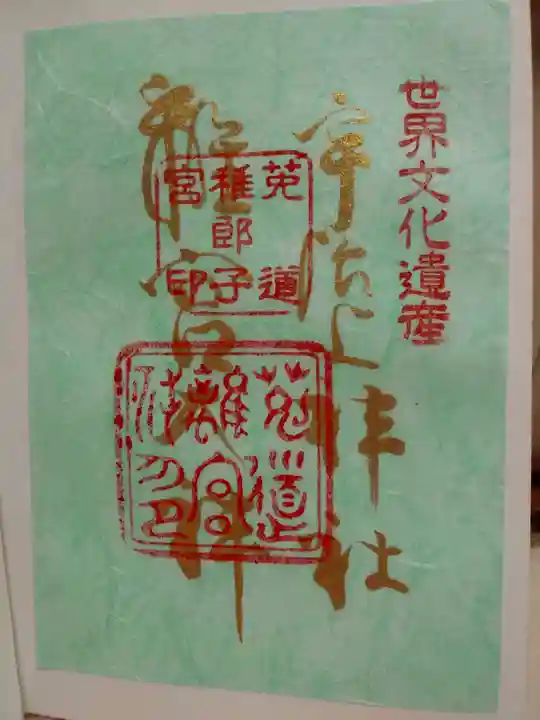 世界文化遺産
宇治上神社
離宮大神
菟道
稚郎子
宮印
菟道
離宮